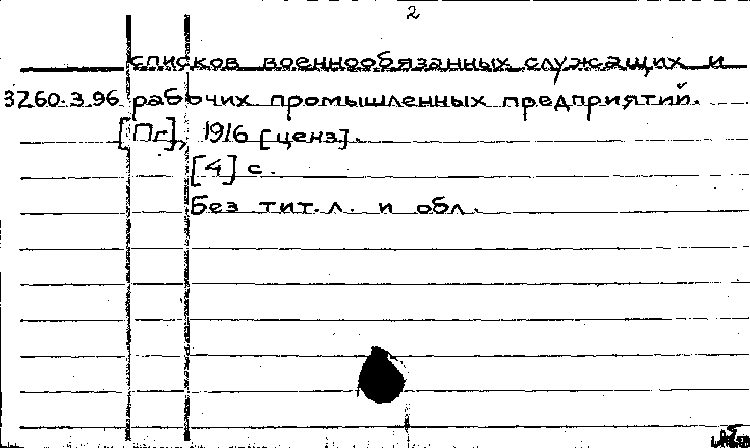 2
списков военнообязанных служащих и
3260.3.96 рабочих промышленных предприятий.
[Пг], 1916 [ценз].
[4] с.
Без тит. л. и обл.